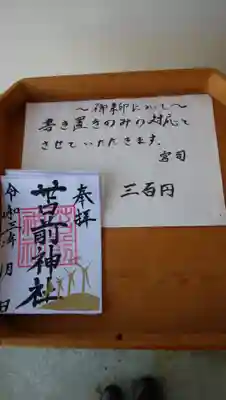 〜御朱印について〜
書き置きのみの対応と
させていただきます。
宮司
三百円
奉拝
前神社
令和三年 月 日